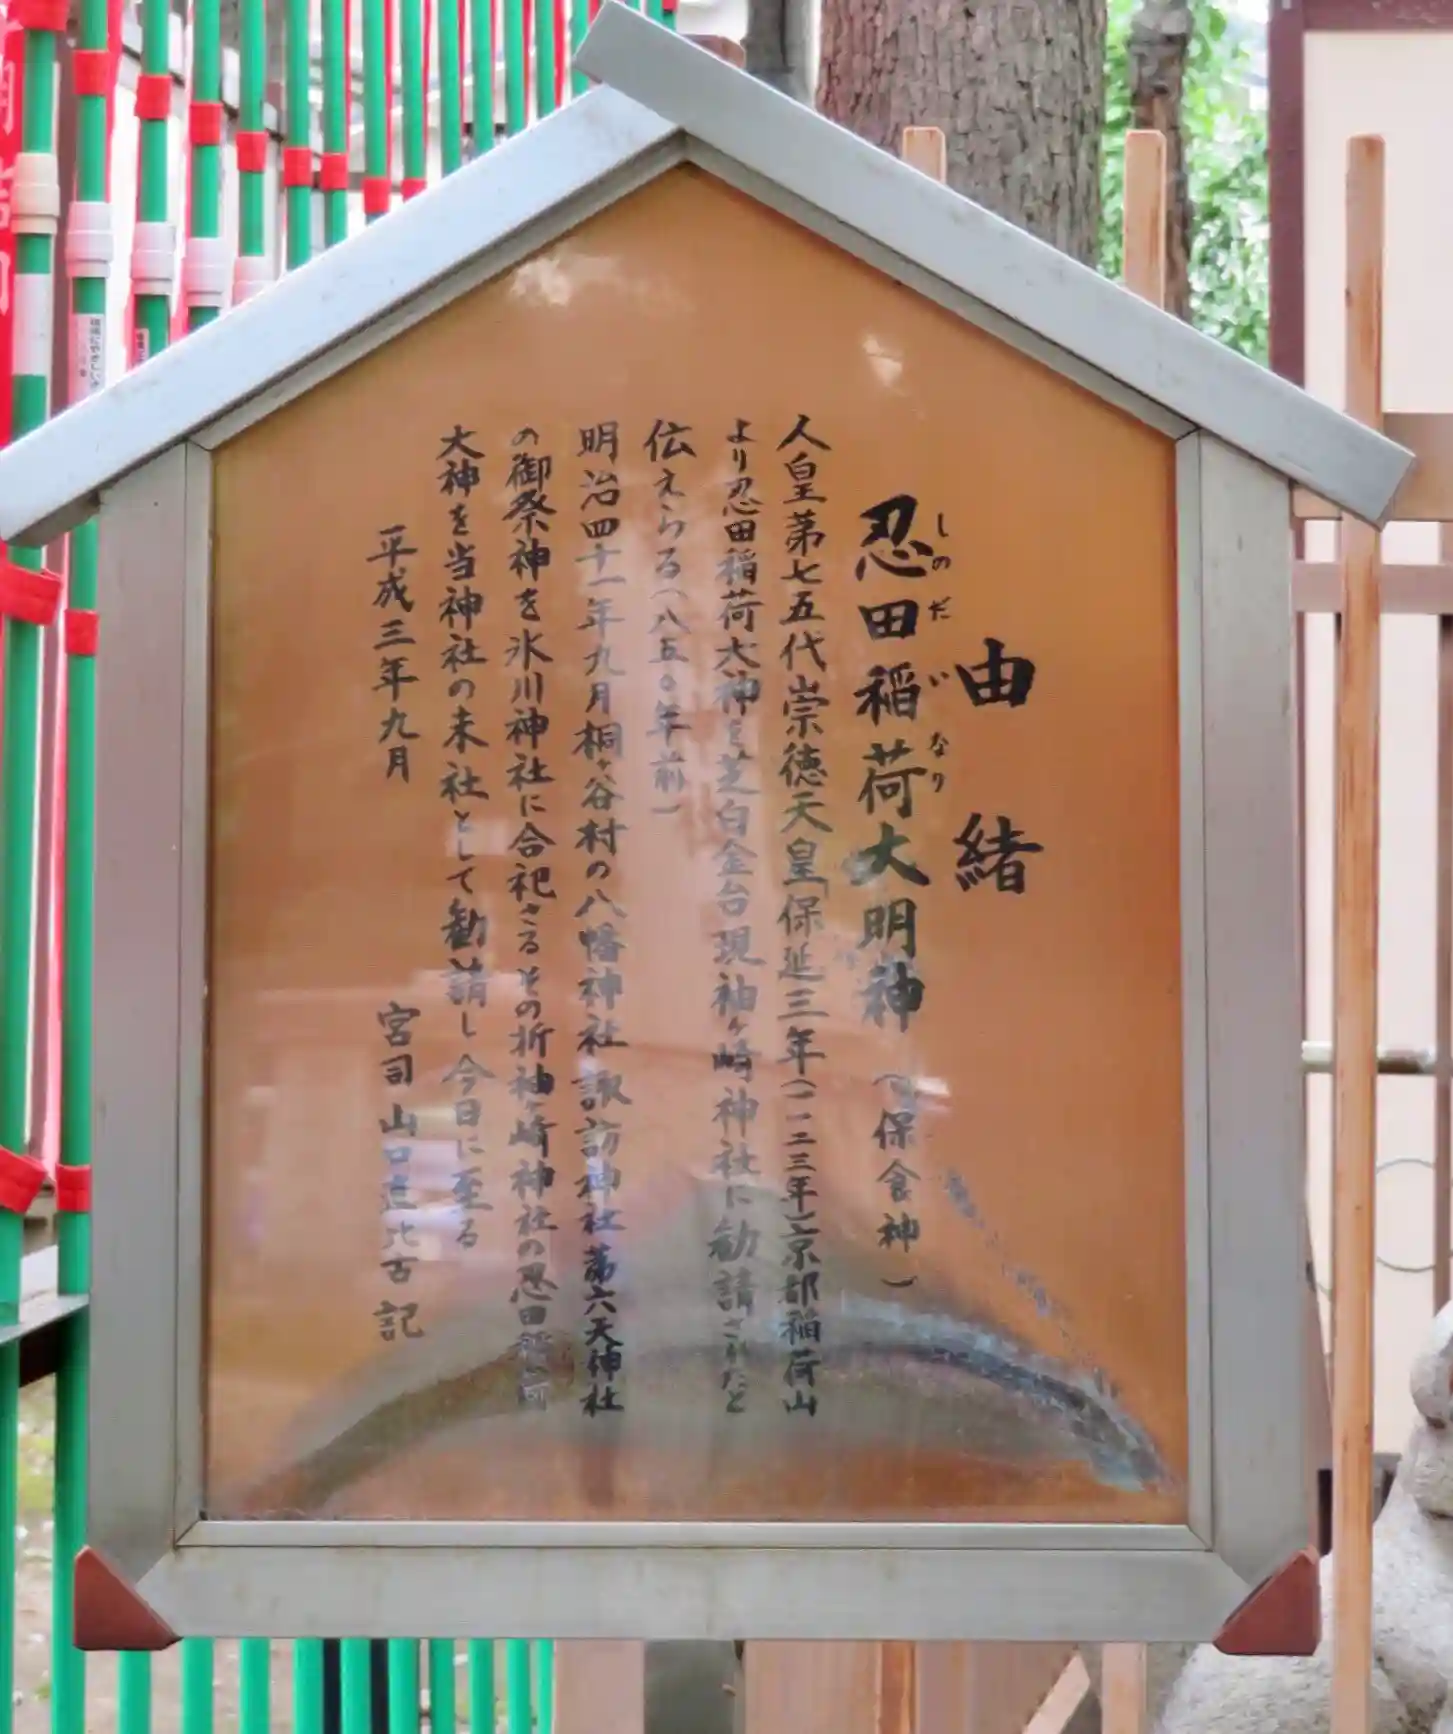 由緒
忍田稲荷大明神（保食神）
しのだいなり
人皇第七五代崇徳天皇「保延三年（一一三三年）」京都稲荷山
より忍田稲荷大神を芝白金台現袖ヶ崎神社に勧請されたと
伝えらる（八五〇年前）
明治四十一年九月桐ヶ谷村の八幡神社 諏訪神社 第六天神社
の御祭神を氷川神社に合祀さるその折袖ヶ崎神社の忍田稲荷
大神を当神社の末社として勧請し今日に至る
平成三年九月 宮司 山口 比古 記